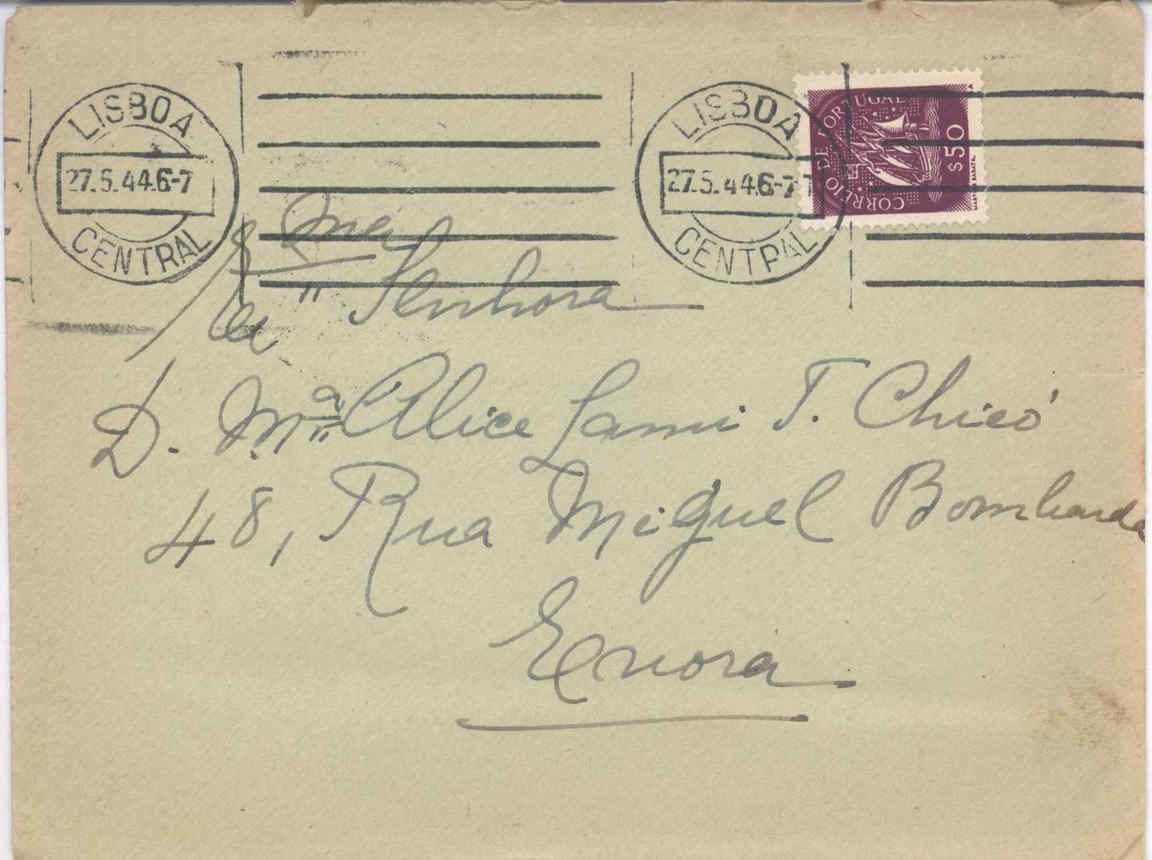 LISBOA
27.5.44.6-7
CENTRAL
LISBOA
27.5.44.6-7
CENTRAL
CORREIO DE PORTUGAL
$50
Exma
Senhora
D. Mª Alice Lami T. Chicó
48, Rua Miguel Bombarda
Evora